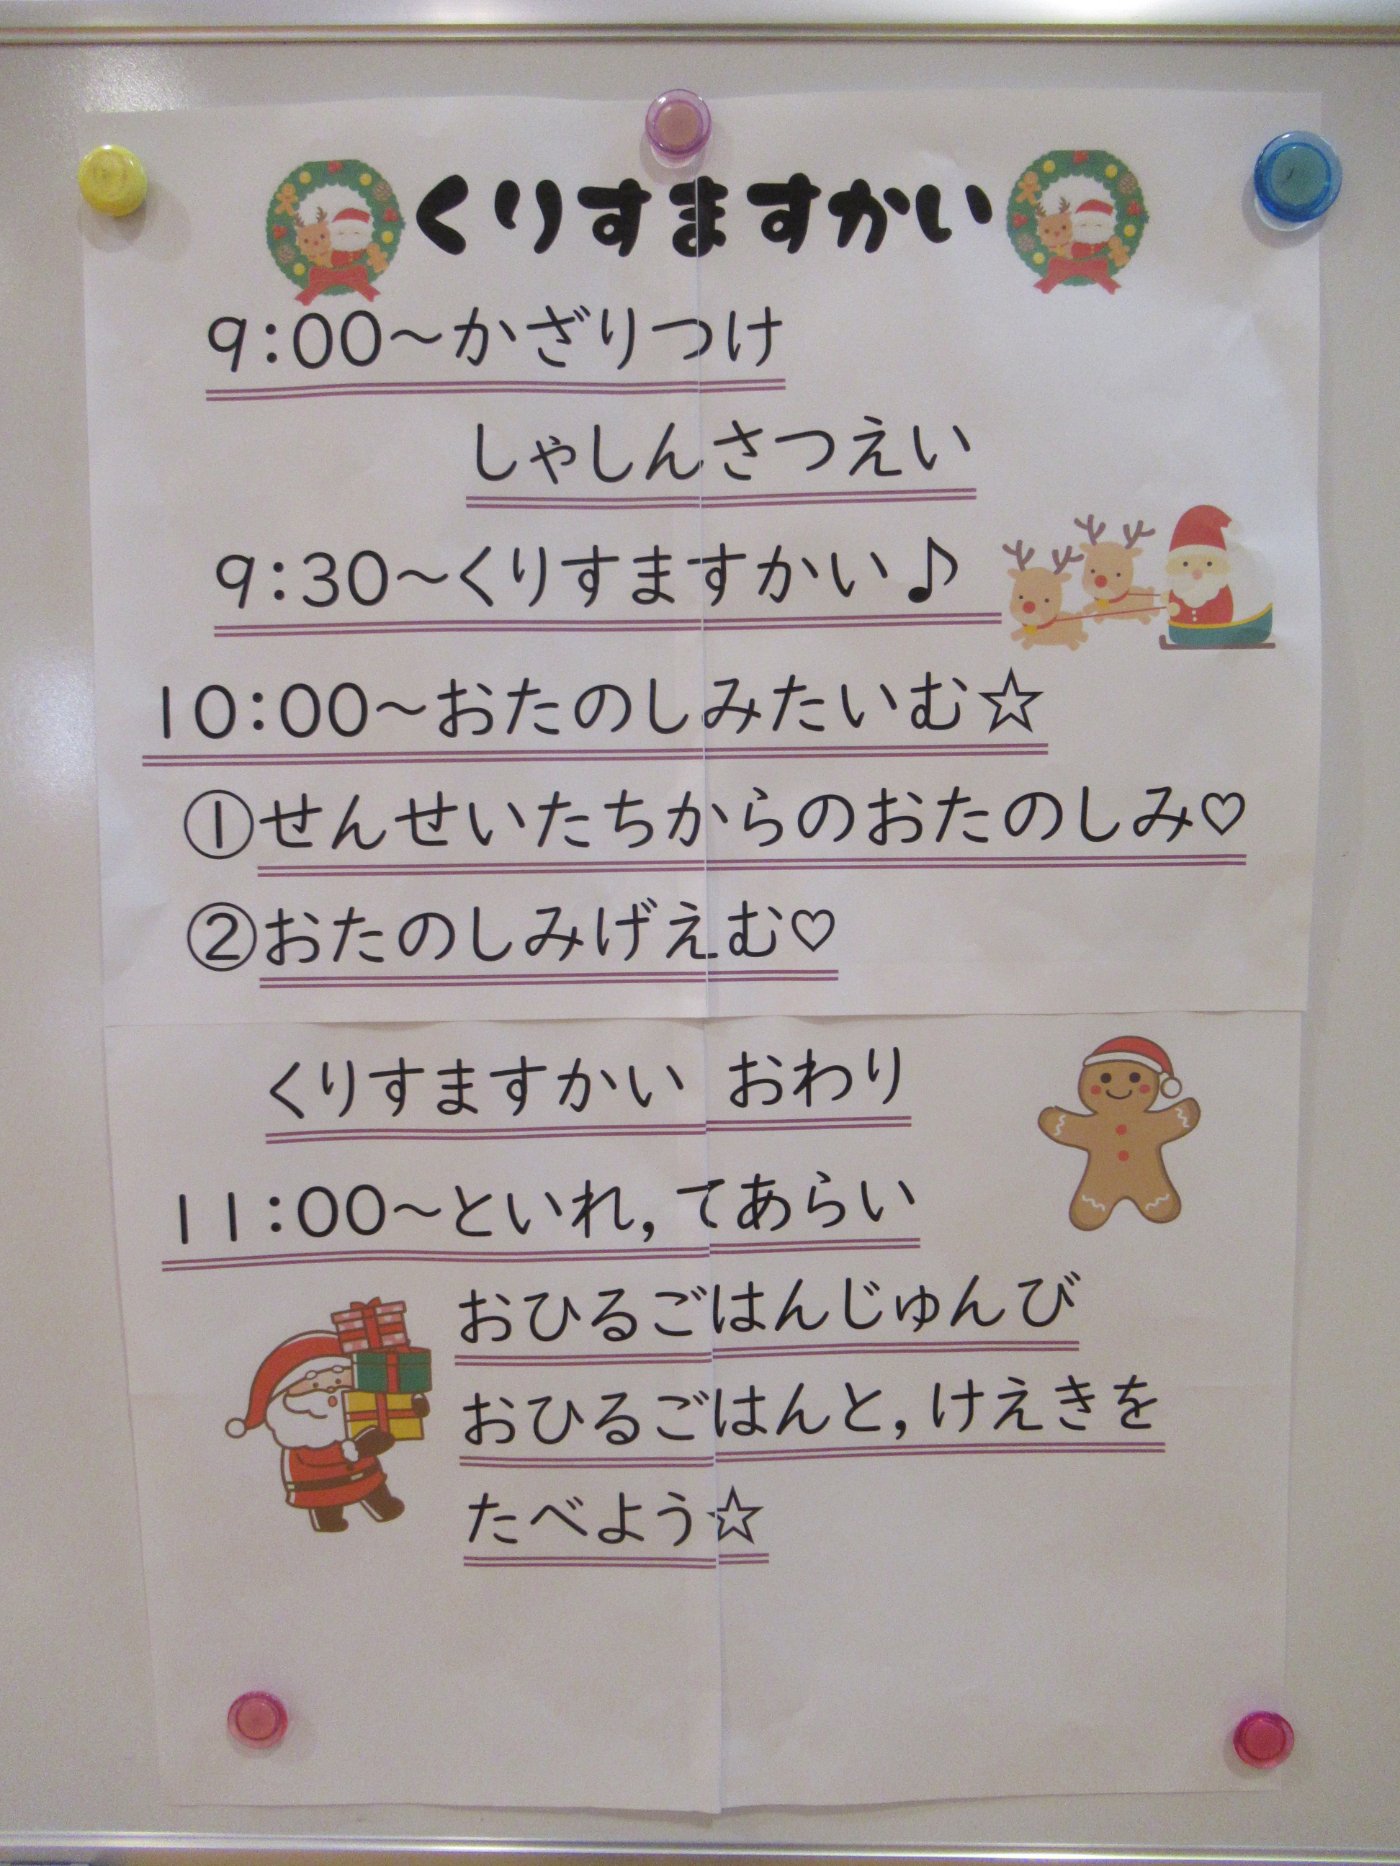 くりすますかい
9:00～かざりつけ
しゃしんさつえい
9:30～くりすますかい♪
10:00～おたのしみたいむ☆
①せんせいたちからのおたのしみ♡
②おたのしみげえむ♡
くりすますかい おわり
11:00～といれ,てあらい
おひるごはんじゅんび
おひるごはんと,けえきを
たべよう☆